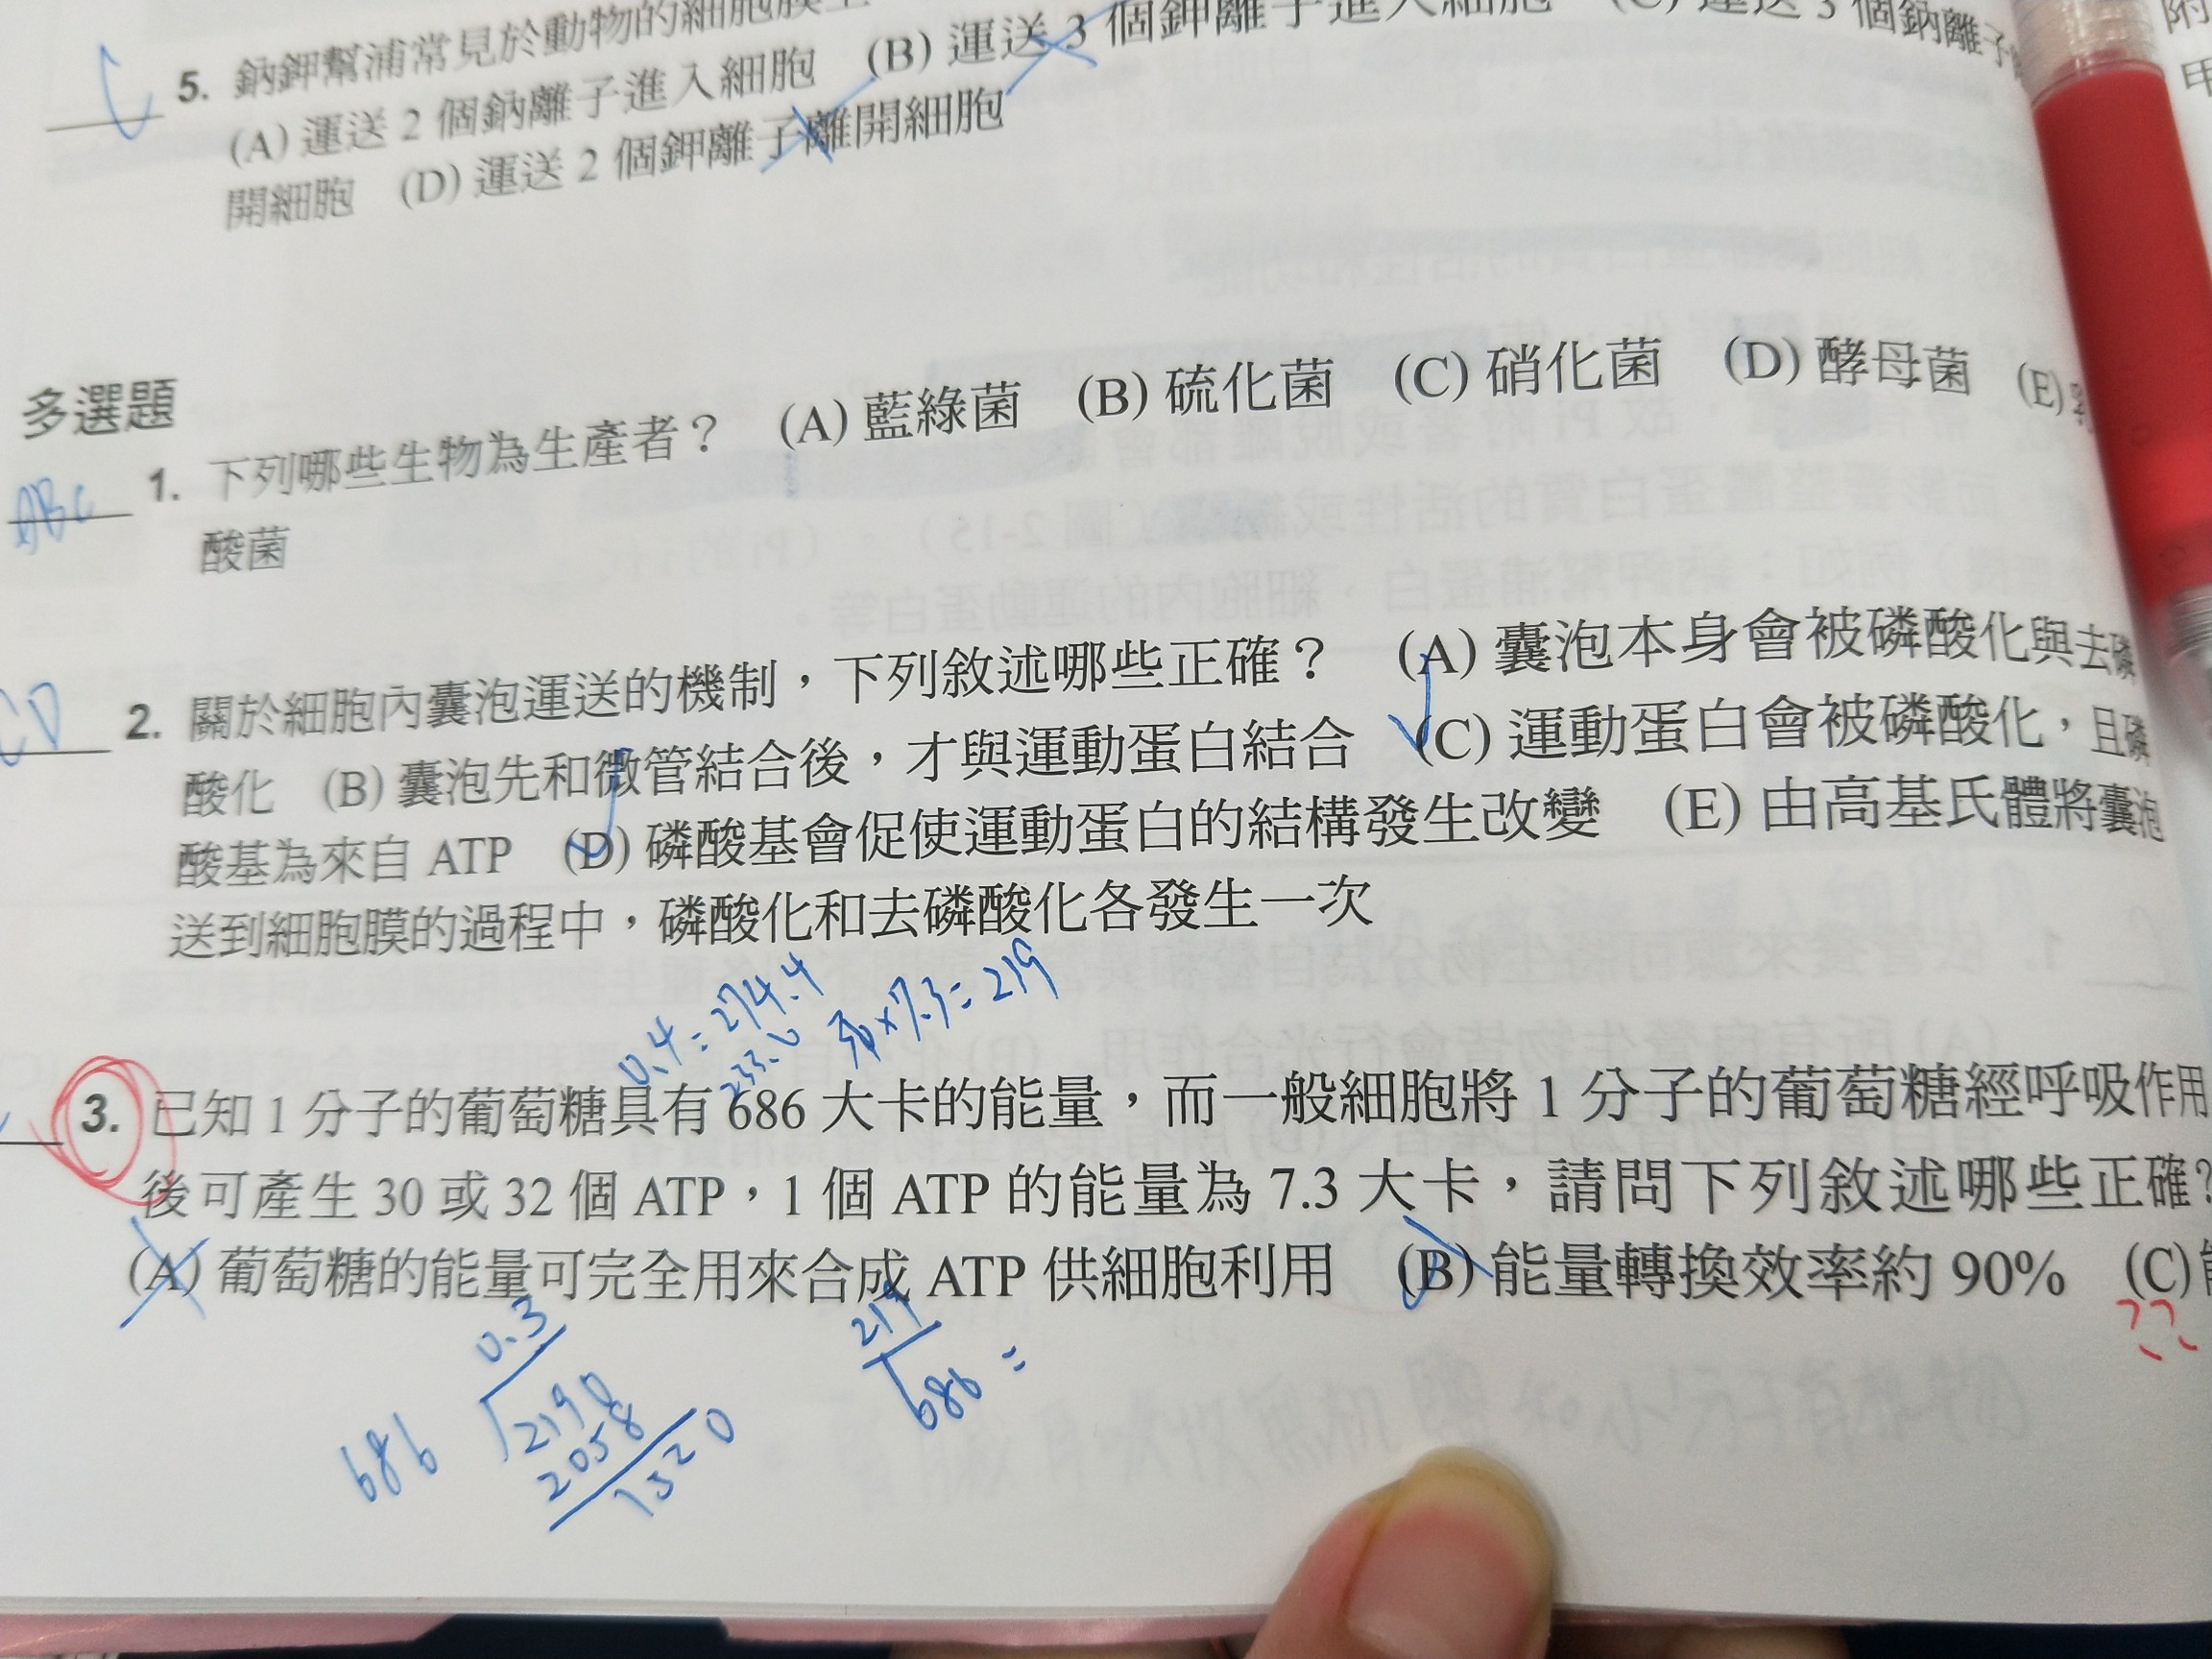 5. 鈉鉀幫浦常見於動物的細胞膜上
(A) 運送 2 個鈉離子進入細胞 (B) 運送 3 個鉀離子進入細胞 (C) 運送 3 個鈉離子
開細胞 (D) 運送 2 個鉀離子離開細胞
C
多選題
ABC
1. 下列哪些生物為生產者？ (A) 藍綠菌 (B) 硫化菌 (C) 硝化菌 (D) 酵母菌 (E)
酸菌
CD
2. 關於細胞內囊泡運送的機制，下列敘述哪些正確？ (A) 囊泡本身會被磷酸化與去磷
酸化 (B) 囊泡先和微管結合後，才與運動蛋白結合 (C) 運動蛋白會被磷酸化，且磷
酸基為來自 ATP (D) 磷酸基會促使運動蛋白的結構發生改變 (E) 由高基氏體將囊泡
送到細胞膜的過程中，磷酸化和去磷酸化各發生一次
0.4 = 274.4
30×7.3=219
3. 已知 1 分子的葡萄糖具有 686 大卡的能量，而一般細胞將 1 分子的葡萄糖經呼吸作用
後可產生 30 或 32 個 ATP，1 個 ATP 的能量為 7.3 大卡，請問下列敘述哪些正確？
(A) 葡萄糖的能量可完全用來合成 ATP 供細胞利用 (B) 能量轉換效率約 90% (C)
??
0.3
219
686 2190
686 =
2058
1320